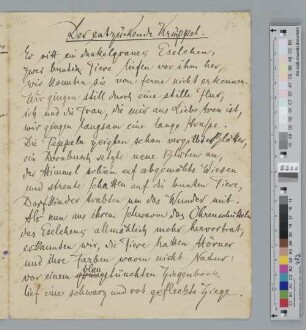 Der entzückende Krüppel.
Er ritt ein dunkelgraues Eselchen,
zwei bunte Tiere liefen vor ihm her,
wir konnten sie von ferne nicht erkennen.
Wir gingen still durch eine stille Flur,
ich und die Frau, die mir aus Liebe
wir gingen langsam eine lange Stunde.
Die Pappeln zeigten schon vergilbte Blätter,
ein Dornbusch setzte neue Blüten an,
der Himmel schien auf abgemähte Wiesen
und streute Schatten auf die bunten Tiere,
Dorfkinder
Als nun aus ihrem Schwarm das Ohrenschütteln
des Eselchens allmählich mehr hervortrat,
erkannten wir, die Tiere hatten Hörner
und ihre Farben waren nicht Natur:
vor einem blau
getünchten Ziegenbock
lief eine schwarz und rot gefleckte Ziege.